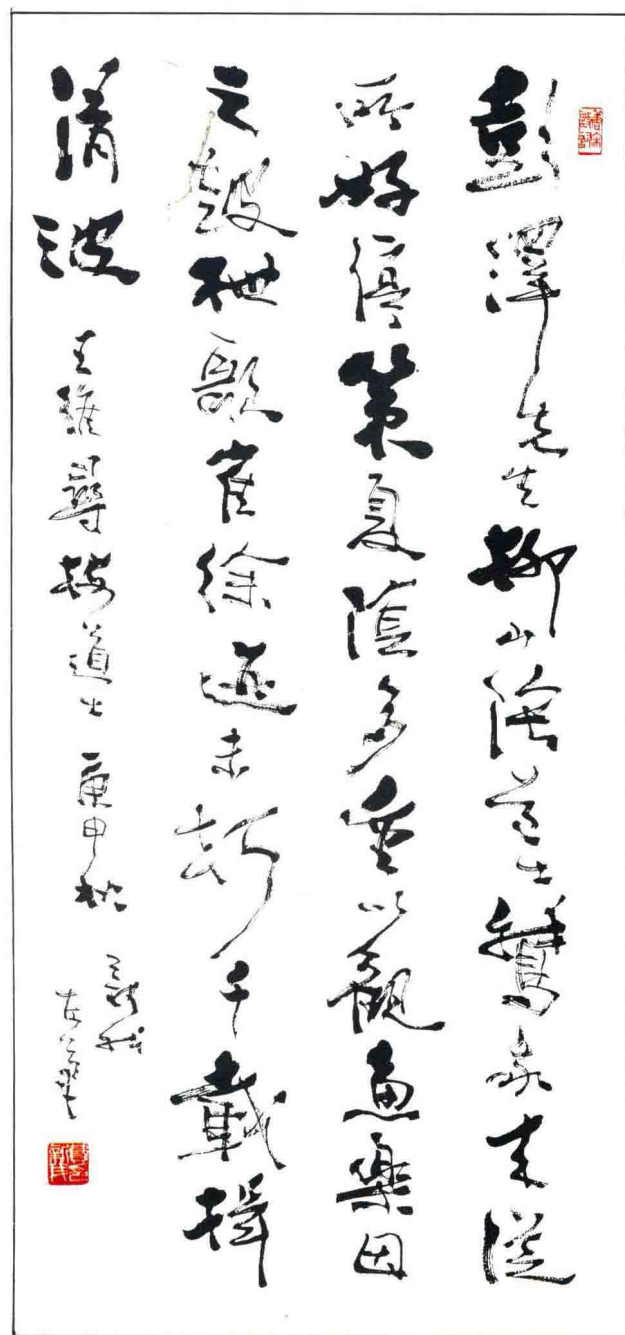 彭澤先生柳山陰道士鵞我来從
所好停策夏陰多重以觀魚樂因
之鼓枻歌崔徐迹未朽千載揖
清波
王維尋梅道士 庚申秋
左筆